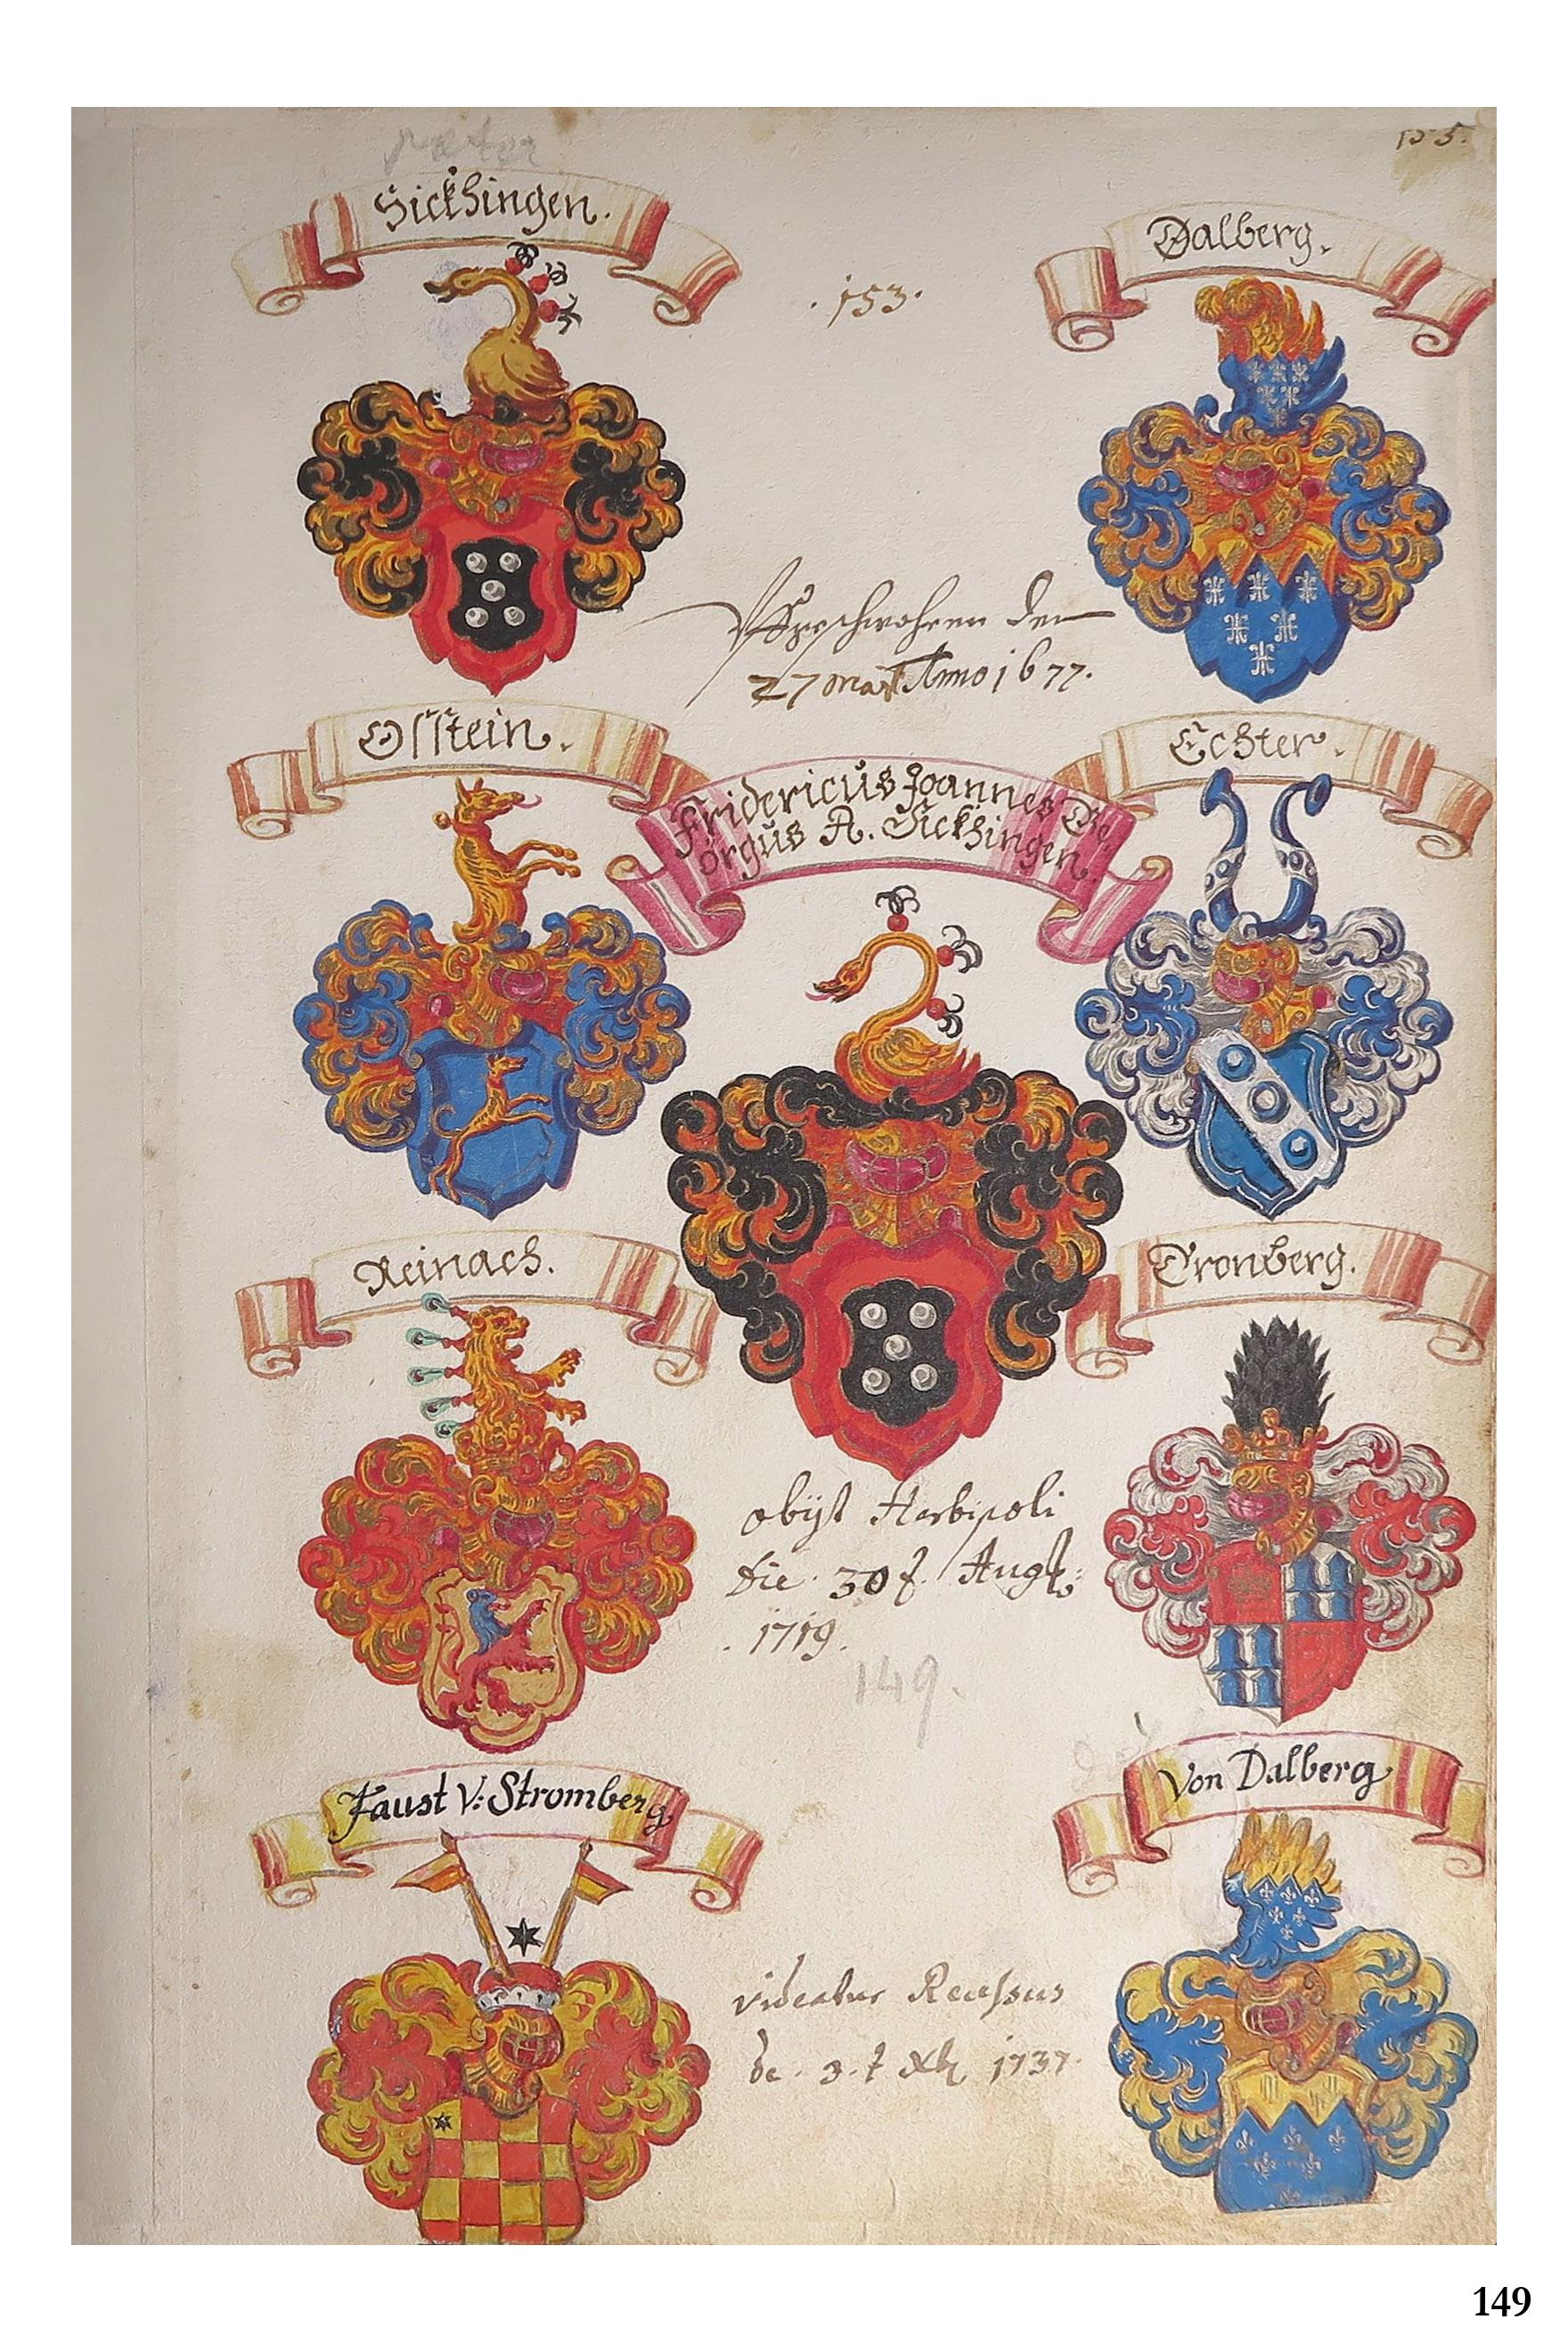 pater
155.
Sickhingen.
Dalberg.
. 153.
Auffgeschwohren den
27 Mart Anno 1677.
Osstein.
Echter.
Fridericus Joannes Ge,
orgus A. Sickhingen.
Reinach.
Cronberg.
obijt Herbipoli
die 30t. Augt:
. 1719.
149.
Faust V: Stromberg
Von Dalberg
videatur Recessus
de . 3. t Xb 1737.
149